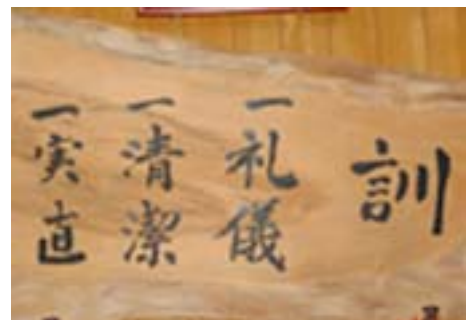 訓
一礼儀
一清潔
一実直